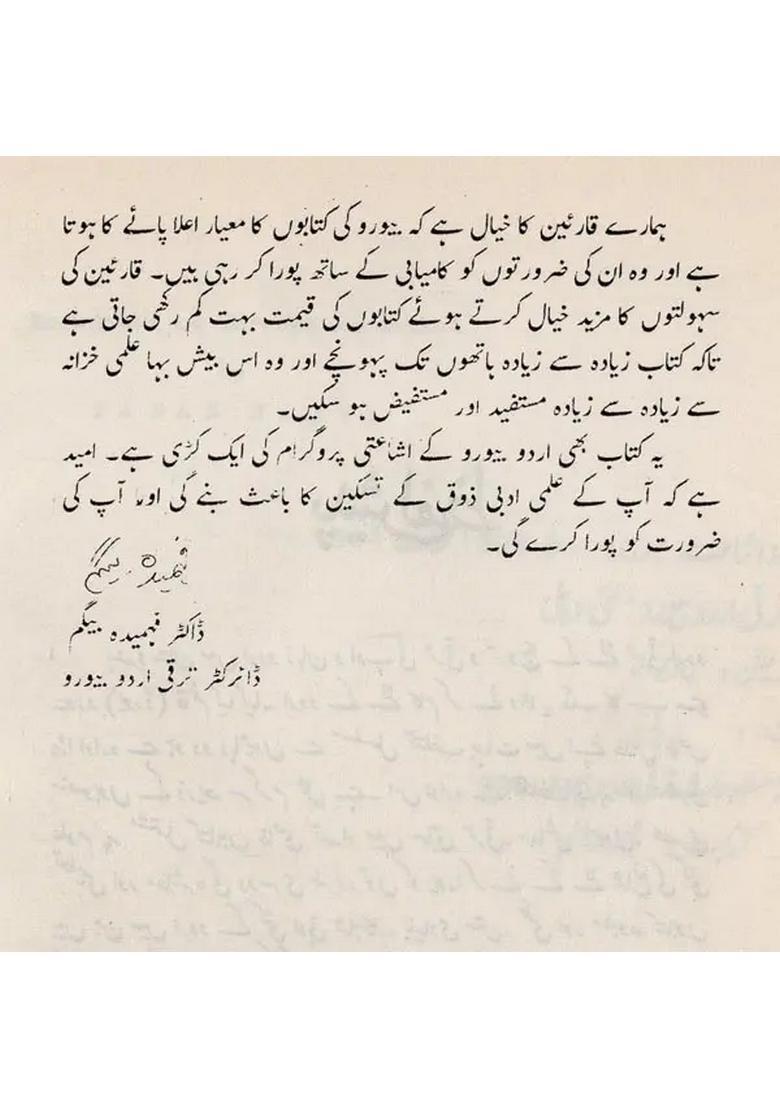 ہمارے قارئین کا خیال ہے کہ بیورو کی کتابوں کا معیار اعلا پائے کا ہوتا
ہے اور وہ ان کی ضرورتوں کو کامیابی کے ساتھ پورا کر رہی ہیں۔ قارئین کی
سہولتوں کا مزید خیال کرتے ہوئے کتابوں کی قیمت بہت کم رکھی جاتی ہے
تاکہ کتاب زیادہ سے زیادہ ہاتھوں تک پہونچے اور وہ اس بیش بہا علمی خزانہ
سے زیادہ سے زیادہ مستفید اور مستفیض ہو سکیں۔
یہ کتاب بھی اردو بیورو کے اشاعتی پروگرام کی ایک کڑی ہے۔ امید
ہے کہ آپ کے علمی ادبی ذوق کے تسکین کا باعث بنے گی اور آپ کی
ضرورت کو پورا کرے گی۔
فہمیدہ بیگم
ڈاکٹر فہمیدہ بیگم
ڈائرکٹر ترقی اردو بیورو